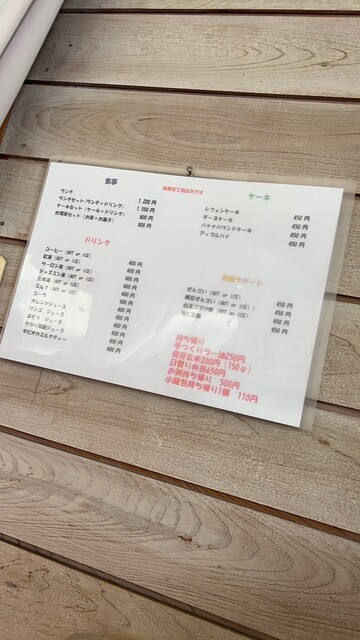 食事
金額全て税込みです
ランチ 1.200 円
ランチセット(ランチ+ドリンク) 1.550 円
ケーキセット(ケーキ+ドリンク) 800 円
台湾茶セット(お茶+お菓子) 800 円
ケーキ
シフォンケーキ 450 円
チーズケーキ 450 円
バナナパウンドケーキ 450 円
アップルパイ 450 円
ドリンク
コーヒー (HOT or ICE) 400 円
紅茶 (HOT or ICE) 400 円
ウーロン茶 (HOT or ICE) 400 円
ジャスミン茶 (HOT or ICE) 400 円
(HOT or ICE) 400 円
ミルク (HOT or ICE) 400 円
コーラ 400 円
オレンジジュース 400 円
リンゴ ジュース 400 円
ぶどう ジュース 400 円
手作り 400 円
タピオカミルクティー 400 円
デザート
ぜんざい (HOT or ICE) 450 円
緑豆ぜんざい (HOT or ICE) 450 円
(HOT or ICE) 450 円
450 円
持ち帰り
手つくりラー油250円
発芽玄米200円 (150g)
日替り弁当650円
お粥持ち帰り 500円
小籠包持ち帰り1個 110円